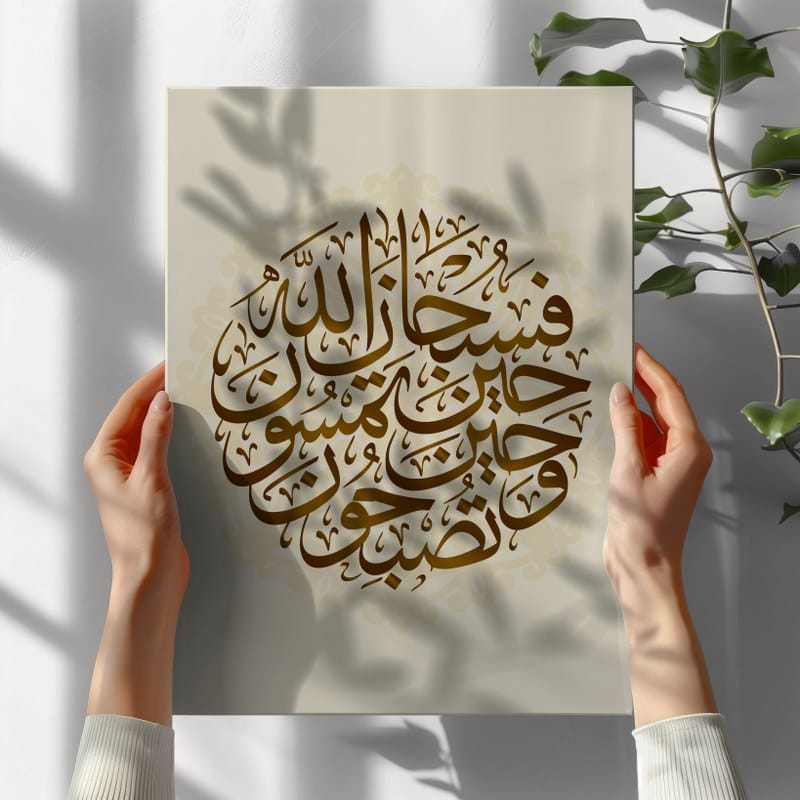 فسبحان الله
حين تمسون
وحين
تصبحون